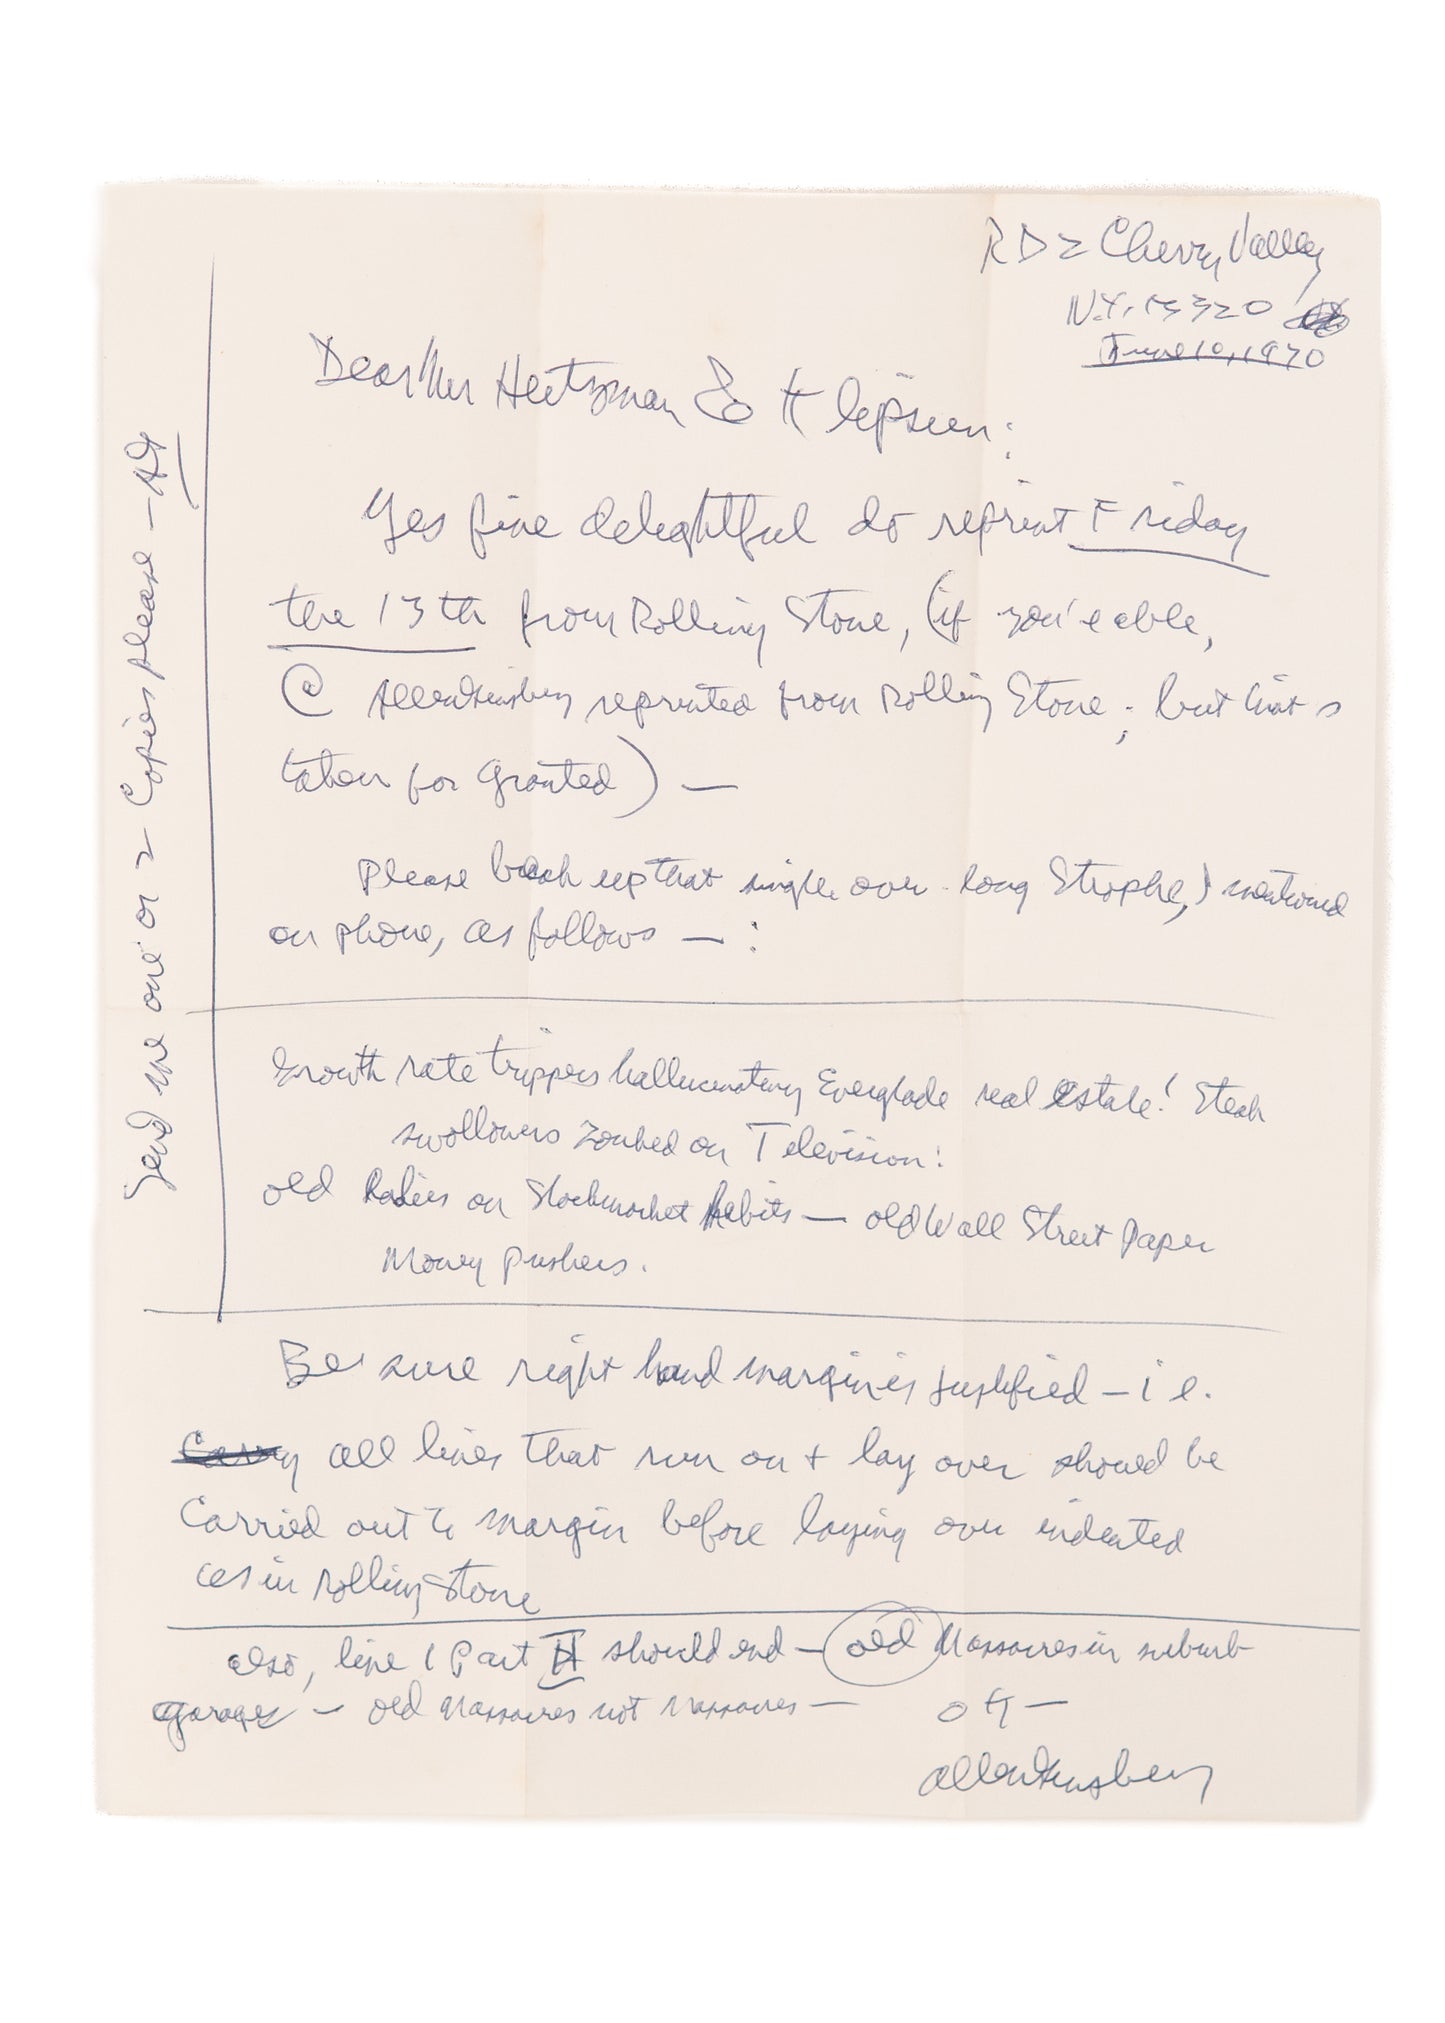 RD 2 Cherry Valley
N.Y. 13320
June 10, 1970
Dear Mr Heitzman & Klipsun:
Yes fine delightful do reprint Friday
the 13th from Rolling Stone, (if you're able,
© Allen Ginsberg reprinted from Rolling Stone; but that's
taken for granted) —
Please break up that single over-long Strophe, I mentioned
on phone, as follows — :
Growth rate trippers hallucinating Everglade real estate! Steak
swallowers zonked on Television!
old Ladies on Stockmarket habits — old Wall Street Paper
Money Pushers.
Be sure right hand margin is justified — i e.
Carry all lines that run on + lay over should be
Carried out to margin before laying over indented
as in Rolling Stone
also, line 1 Part II should end — old Massacres in suburb
garages — old Massacres not Massacres — ok —
Allen Ginsberg
Send me one or 2 Copies please — AG